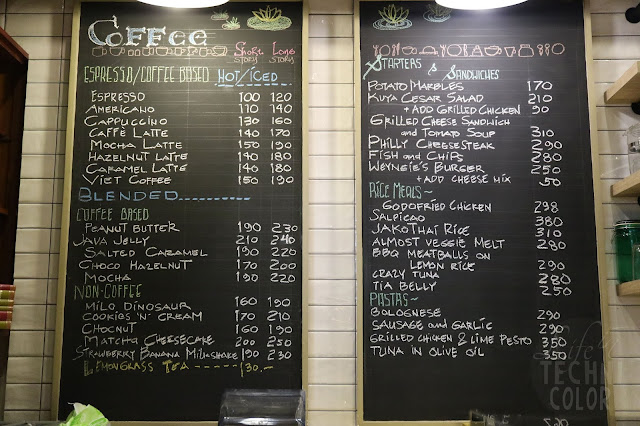 Coffee
Short Story Long Story
ESPRESSO/COFFEE BASED HOT/ICED
ESPRESSO 100 120
AMERICANO 110 140
CAPPUCCINO 130 160
CAFFÈ LATTE 140 170
MOCHA LATTE 150 190
HAZELNUT LATTE 140 180
CARAMEL LATTE 140 180
VIET COFFEE 150 190
BLENDED
COFFEE BASED
PEANUT BUTTER 190 230
JAVA JELLY 210 240
SALTED CARAMEL 190 220
CHOCO HAZELNUT 170 200
MOCHA 190 220
NON-COFFEE
MILO DINOSAUR 160 190
COOKIES 'N' CREAM 170 210
CHOCNUT 160 190
MATCHA CHEESECAKE 200 250
STRAWBERRY BANANA MILKSHAKE 190 230
LEMONGRASS TEA ----- 130.-
STARTERS & SANDWICHES
POTATO MARBLES 170
KUYA CESAR SALAD 210
+ ADD GRILLED CHICKEN 90
GRILLED CHEESE SANDWICH
and TOMATO SOUP 310
PHILLY CHEESESTEAK 290
FISH and CHIPS 280
WEYNGIE'S BURGER 250
+ ADD CHEESE MIX 50
RICE MEALS~
GODOFRIED CHICKEN 298
SALPICAO 380
JAKOTHAI RICE 310
ALMOST VEGGIE MELT 280
BBQ MEATBALLS ON
LEMON RICE 290
CRAZY TUNA 280
TIA BELLY 250
PASTAS~
BOLOGNESE 290
SAUSAGE and GARLIC 290
GRILLED CHICKEN & LIME PESTO 350
TUNA IN OLIVE OIL 350
Life in
TECHNI
COLOR